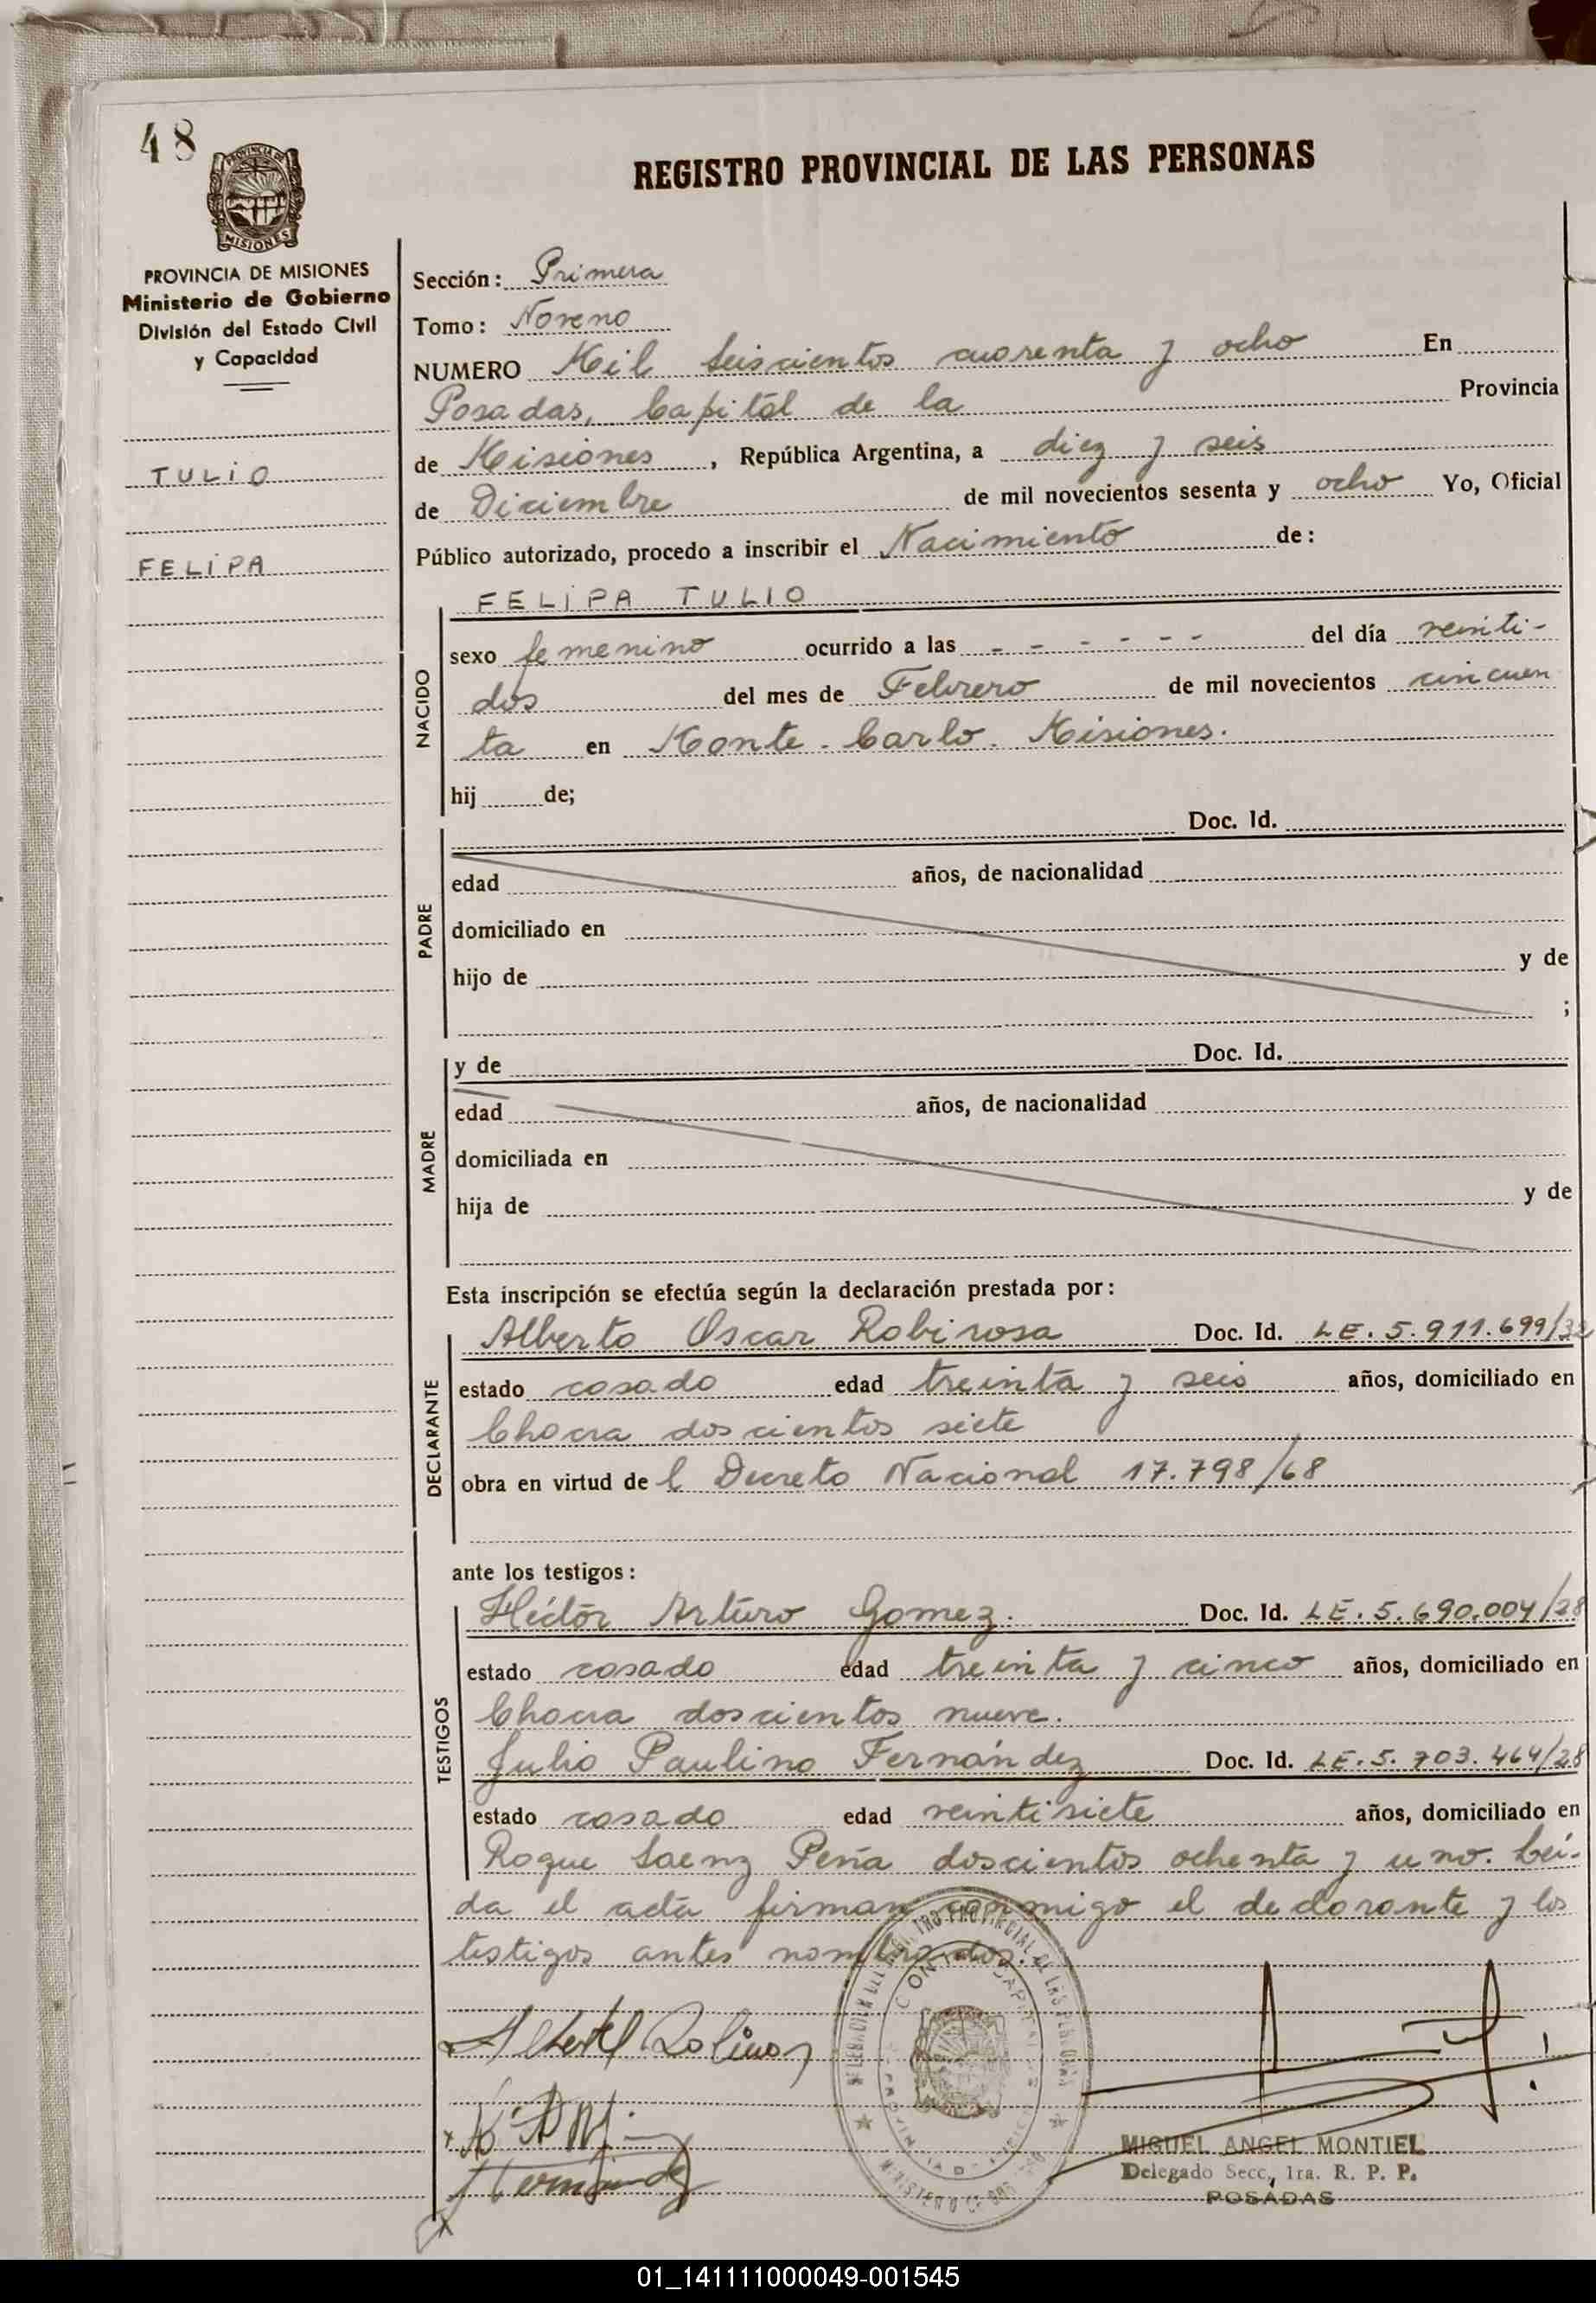 48
REGISTRO PROVINCIAL DE LAS PERSONAS
PROVINCIA DE
MISIONES
PROVINCIA DE MISIONES
Ministerio de Gobierno
División del Estado Civil
y Capacidad
TULIO
FELIPA
Sección: Primera
Tomo: Noveno
NUMERO Mil Seiscientos cuarenta y ocho En
Posadas, Capital de la Provincia
de Misiones, República Argentina, a diez y seis
de Diciembre de mil novecientos sesenta y ocho Yo, Oficial
Público autorizado, procedo a inscribir el Nacimiento de:
FELIPA TULIO
NACIDO
sexo femenino ocurrido a las - - - - - del día veinti-
dos del mes de Febrero de mil novecientos cincuen
ta en Monte-Carlo. Misiones.
hij de;
PADRE
Doc. Id.
edad años, de nacionalidad
domiciliado en
hijo de y de
;
MADRE
y de Doc. Id.
edad años, de nacionalidad
domiciliada en
hija de y de
Esta inscripción se efectúa según la declaración prestada por:
DECLARANTE
Alberto Oscar Robirosa Doc. Id. LE. 5.911.699/32
estado casado edad treinta y seis años, domiciliado en
Chacra doscientos siete
obra en virtud del Decreto Nacional 17.798/68
ante los testigos:
TESTIGOS
Héctor Arturo Gomez. Doc. Id. LE. 5.690.004/28
estado casado edad treinta y cinco años, domiciliado en
Chacra doscientos nueve.
Julio Paulino Fernández Doc. Id. LE. 5.703.464/28
estado casado edad veintisiete años, domiciliado en
Roque Saenz Peña doscientos ochenta y uno. Leí-
da el acta firman conmigo el declarante y los
testigos antes nombrados.
MIGUEL ANGEL MONTIEL
Delegado Secc, 1ra. R. P. P.
POSADAS
01_141111000049-001545